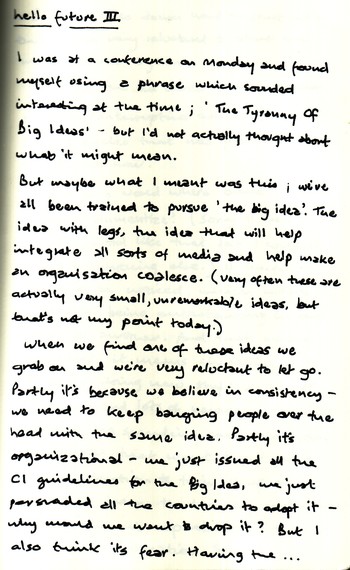 hello future III
I was at a conference on Monday and found
myself using a phrase which sounded
interesting at the time; 'The Tyranny Of
Big Ideas' - but I'd not actually thought about
what it might mean.
But maybe what I meant was this; we've
all been trained to pursue 'the big idea'. The
idea with legs, the idea that will help
integrate all sorts of media and help make
an organisation coalesce. (very often these are
actually very small, unremarkable ideas, but
that's not my point today.)
When we find one of these ideas we
grab on and we're very reluctant to let go.
Partly it's because we believe in consistency -
we need to keep banging people over the
head with the same idea. Partly it's
organizational - we just issued all the
CI guidelines for the Big Idea, we just
persuaded all the countries to adopt it -
why would we want to drop it? But I
also think it's fear. Having the ...